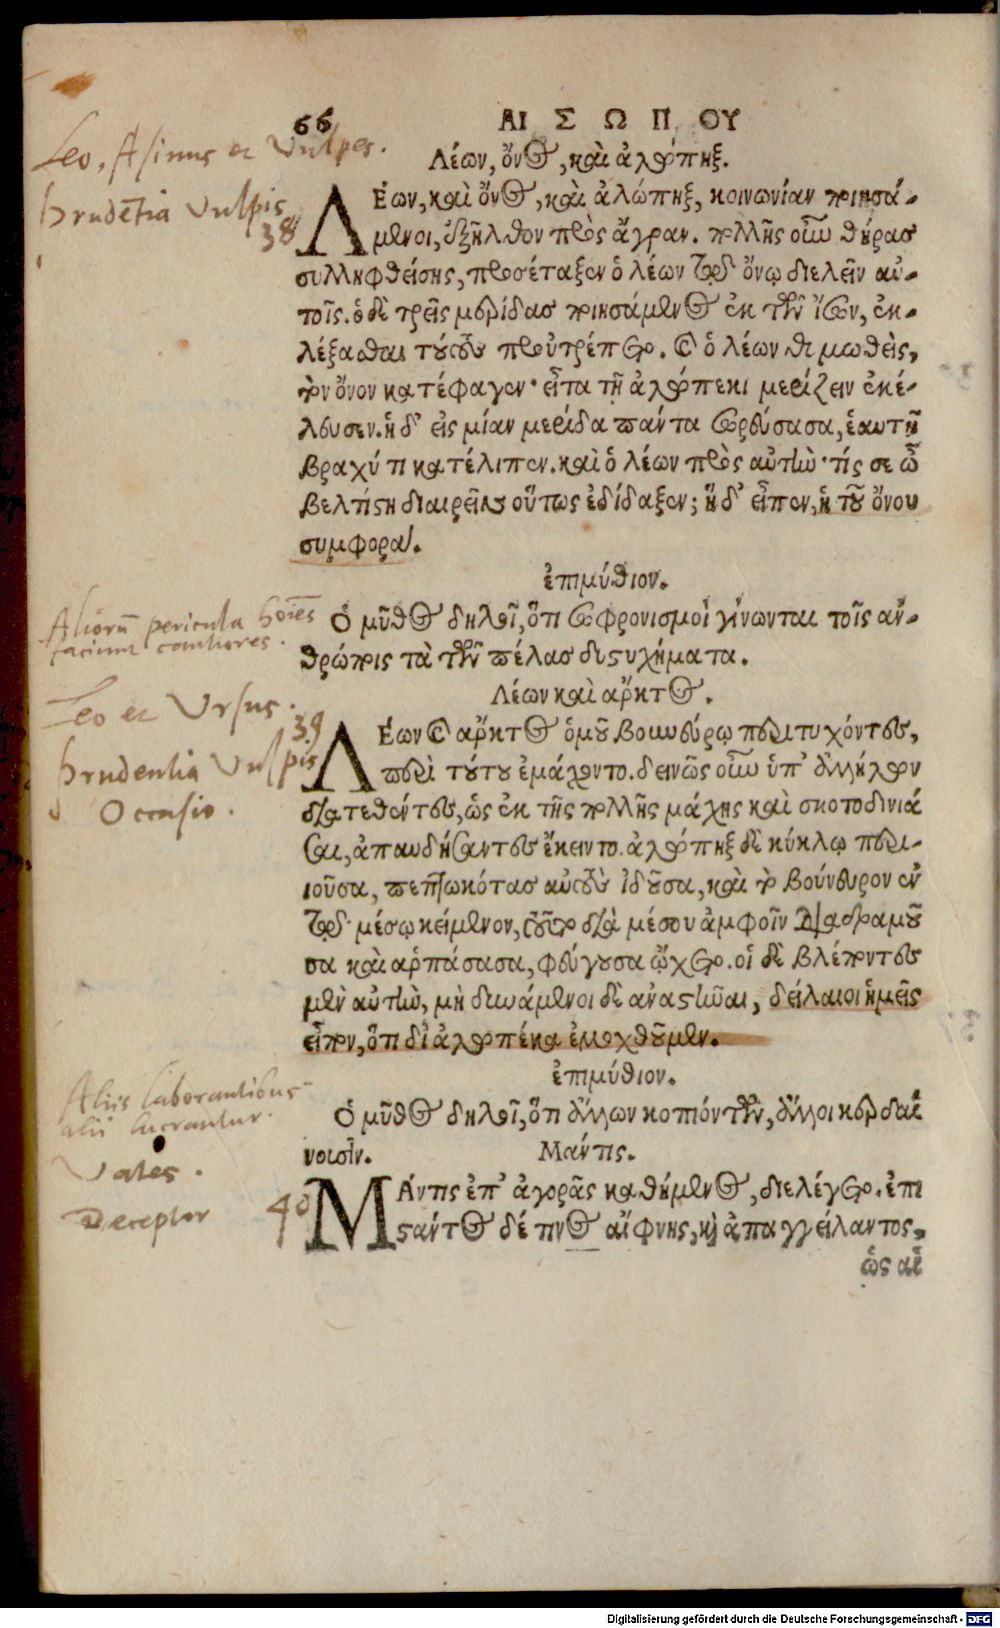 66 ΑΙΣΩΠΟΥ
Leo, Asinus et Vulpes.
Λέων, ὄνος, καὶ ἀλώπηξ.
Prudētia Vulpis
38
ΛΕων, καὶ ὄνος, καὶ ἀλώπηξ, κοινωνίαν ποιησά-
μενοι, ἐξῆλθον πρὸς ἄγραν. πολλῆς οὖν θήρας
συλληφθείσης, προσέταξεν ὁ λέων τῷ ὄνῳ διελεῖν αὐ-
τοῖς. ὁ δὲ τρεῖς μερίδας ποιησάμενος ἐκ τῶν ἴσων, ἐκ-
λέξασθαι τούτους προὐτρέπετο. καὶ ὁ λέων θυμωθεὶς,
τὸν ὄνον κατέφαγεν· εἶτα τῇ ἀλώπεκι μερίζειν ἐκέ-
λευσεν. ἡ δ' εἰς μίαν μερίδα πάντα σωρεύσασα, ἑαυτῇ
βραχύ τι κατέλιπεν. καὶ ὁ λέων πρὸς αὐτὴν· τίς σε ὦ
βελτίστη διαιρεῖν οὕτως ἐδίδαξεν; ἡ δ' εἶπεν, ἡ τοῦ ὄνου
συμφορά.
ἐπιμύθιον.
Aliorū pericula hoīes
faciunt cautiores.
Ὁ μῦθος δηλοῖ, ὅτι σωφρονισμοὶ γίνονται τοῖς ἀν-
θρώποις τὰ τῶν πέλας δυστυχήματα.
Leo et Ursus.
Λέων καὶ ἄρκτος.
39
Prudentia Vulpis
Occasio.
ΛΕων καὶ ἄρκτος ὁμοῦ βοὸς νεβρῷ περιτυχόντες,
περὶ τούτου ἐμάχοντο. δεινῶς οὖν ὑπ' ἀλλήλων
διατεθέντες, ὡς ἐκ τῆς πολλῆς μάχης καὶ σκοτοδινιά
σαι, ἀπαυδήσαντες ἔκειντο. ἀλώπηξ δὲ κύκλῳ περι-
ιοῦσα, πεπτωκότας αὐτοὺς ἰδοῦσα, καὶ τὸ βούνευρον ἐν
τῷ μέσῳ κείμενον, τοῦτο διὰ μέσου ἀμφοῖν διαδραμοῦ
σα καὶ ἁρπάσασα, φεύγουσα ᾤχετο. οἱ δὲ βλέποντες
μὲν αὐτὴν, μὴ δυνάμενοι δὲ ἀναστῆναι, δείλαιοι ἡμεῖς
εἶπον, ὅτι δι' ἀλώπεκα ἐμοχθοῦμεν.
ἐπιμύθιον.
Aliis laborantibus
alii lucrantur.
Ὁ μῦθος δηλοῖ, ὅτι ἄλλων κοπιόντων, ἄλλοι κερδαί
νουσιν. Μάντις.
Vates.
Deceptor
40
ΜΑντις ἐπ' ἀγορᾶς καθήμενος, διελέγετο. ἐπι
στάντος δέ τινος αἴφνης, καὶ ἀπαγγείλαντος,
ὡς αἱ
Digitalisierung gefördert durch die Deutsche Forschungsgemeinschaft - DFG